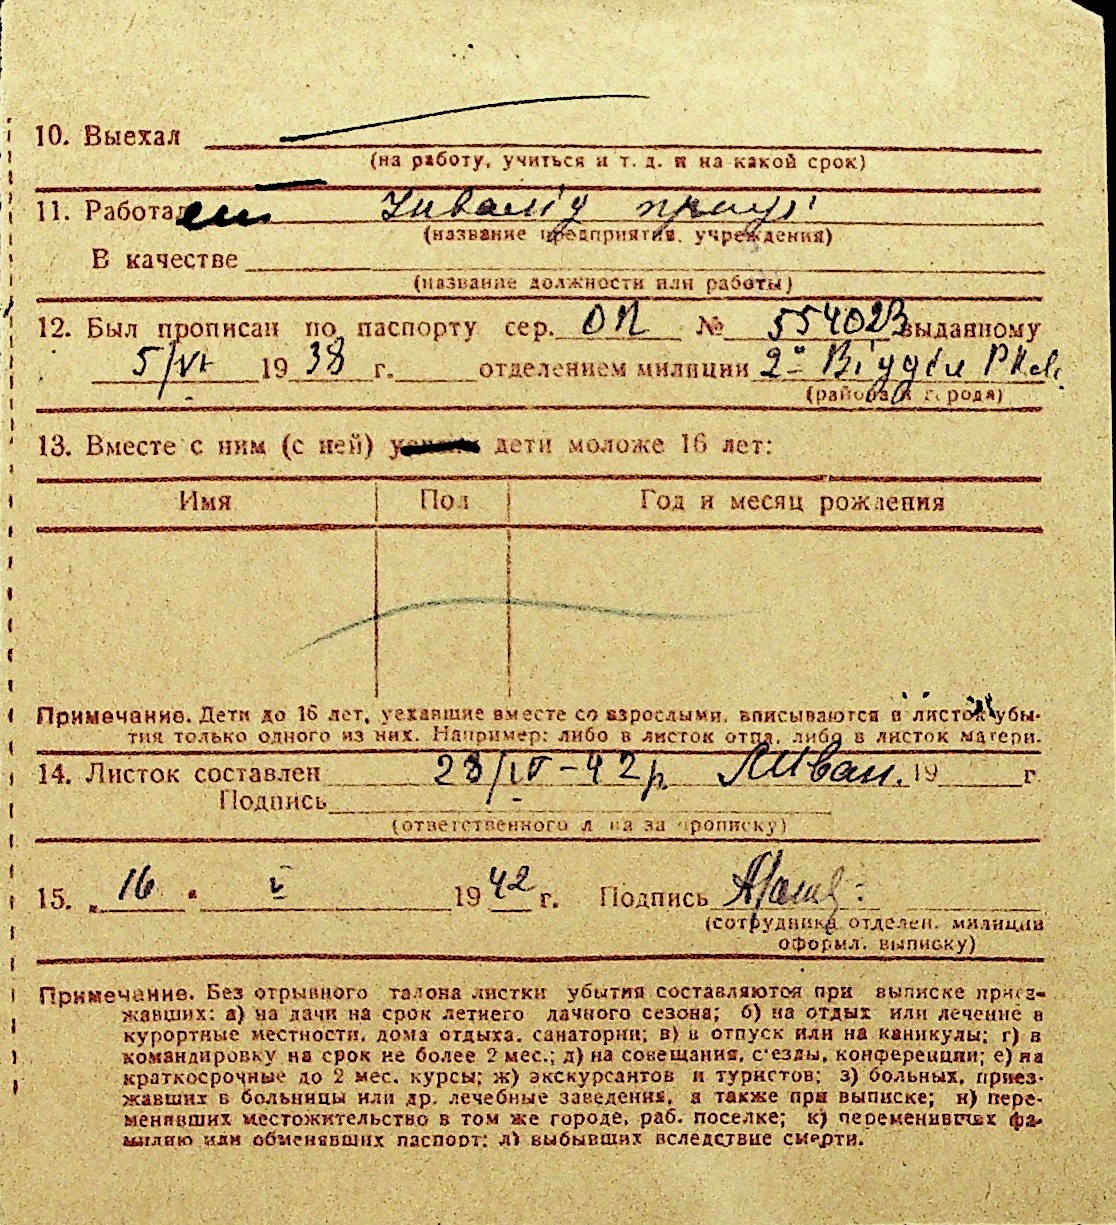 10. Выехал
(на работу, учиться и т. д. и на какой срок)
11. Работал Інвалід праці
(название предприятия, учреждения)
В качестве
(название должности или работы)
12. Был прописан по паспорту сер. ОП № 554023 выданному
5/VI 1938 г. отделением милиции 2º Відділ
(района и города)
13. Вместе с ним (с ней) дети моложе 16 лет:
Имя Пол Год и месяц рождения
Примечание. Дети до 16 лет, уехавшие вместе со взрослыми, вписываются в листок убы-
тия только одного из них. Например: либо в листок отца, либо в листок матери.
14. Листок составлен 28/IV-42р. 19 г.
Подпись
(ответственного лица за прописку)
15. „ 16 " V 1942 г. Подпись
(сотрудника отделен. милиции
оформл. выписку)
Примечание. Без отрывного талона листки убытия составляются при выписке приез-
жавших: а) на дачи на срок летнего дачного сезона; б) на отдых или лечение в
курортные местности, дома отдыха, санатории; в) в отпуск или на каникулы; г) в
командировку на срок не более 2 мес.; д) на совещания, с'езды, конференции; е) на
краткосрочные до 2 мес. курсы; ж) экскурсантов и туристов; з) больных, приез-
жавших в больницы или др. лечебные заведения, а также при выписке; и) пере-
менявших местожительство в том же городе, раб. поселке; к) переменивших фа-
милию или обменявших паспорт; л) выбывших вследствие смерти.